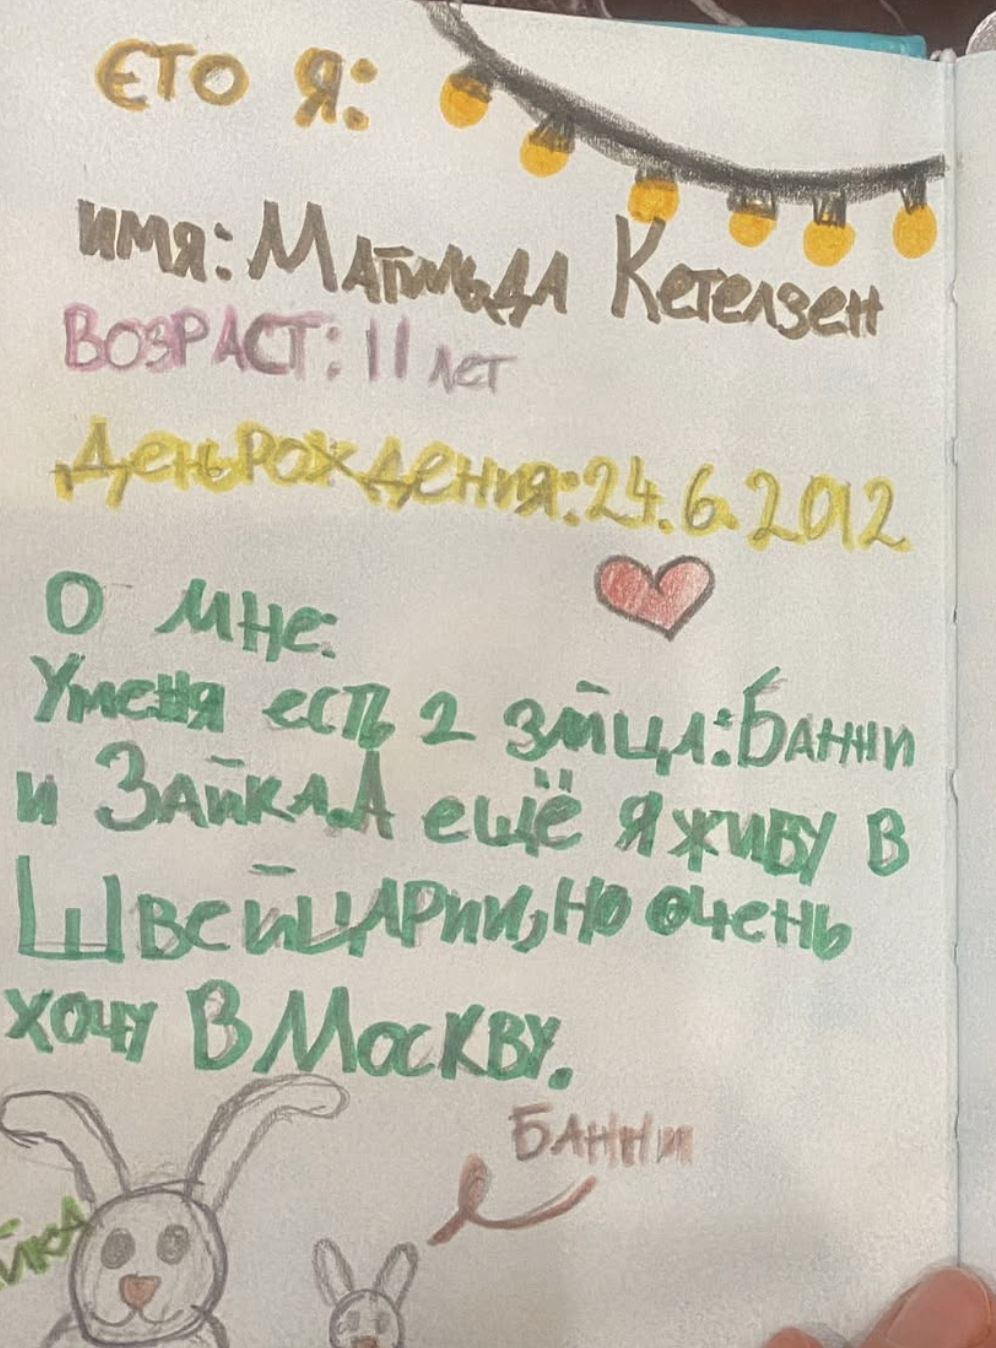 ЄТО Я:
имя: Матильда Кетелзен
Возраст: 11 лет
День Рождения: 24.6.2012
О мне:
Уменя есть 2 зйца: Банни
и Зайка. А ещё я живу в
Швейцарии, но очень
хочу в Москву.
Банни
йка